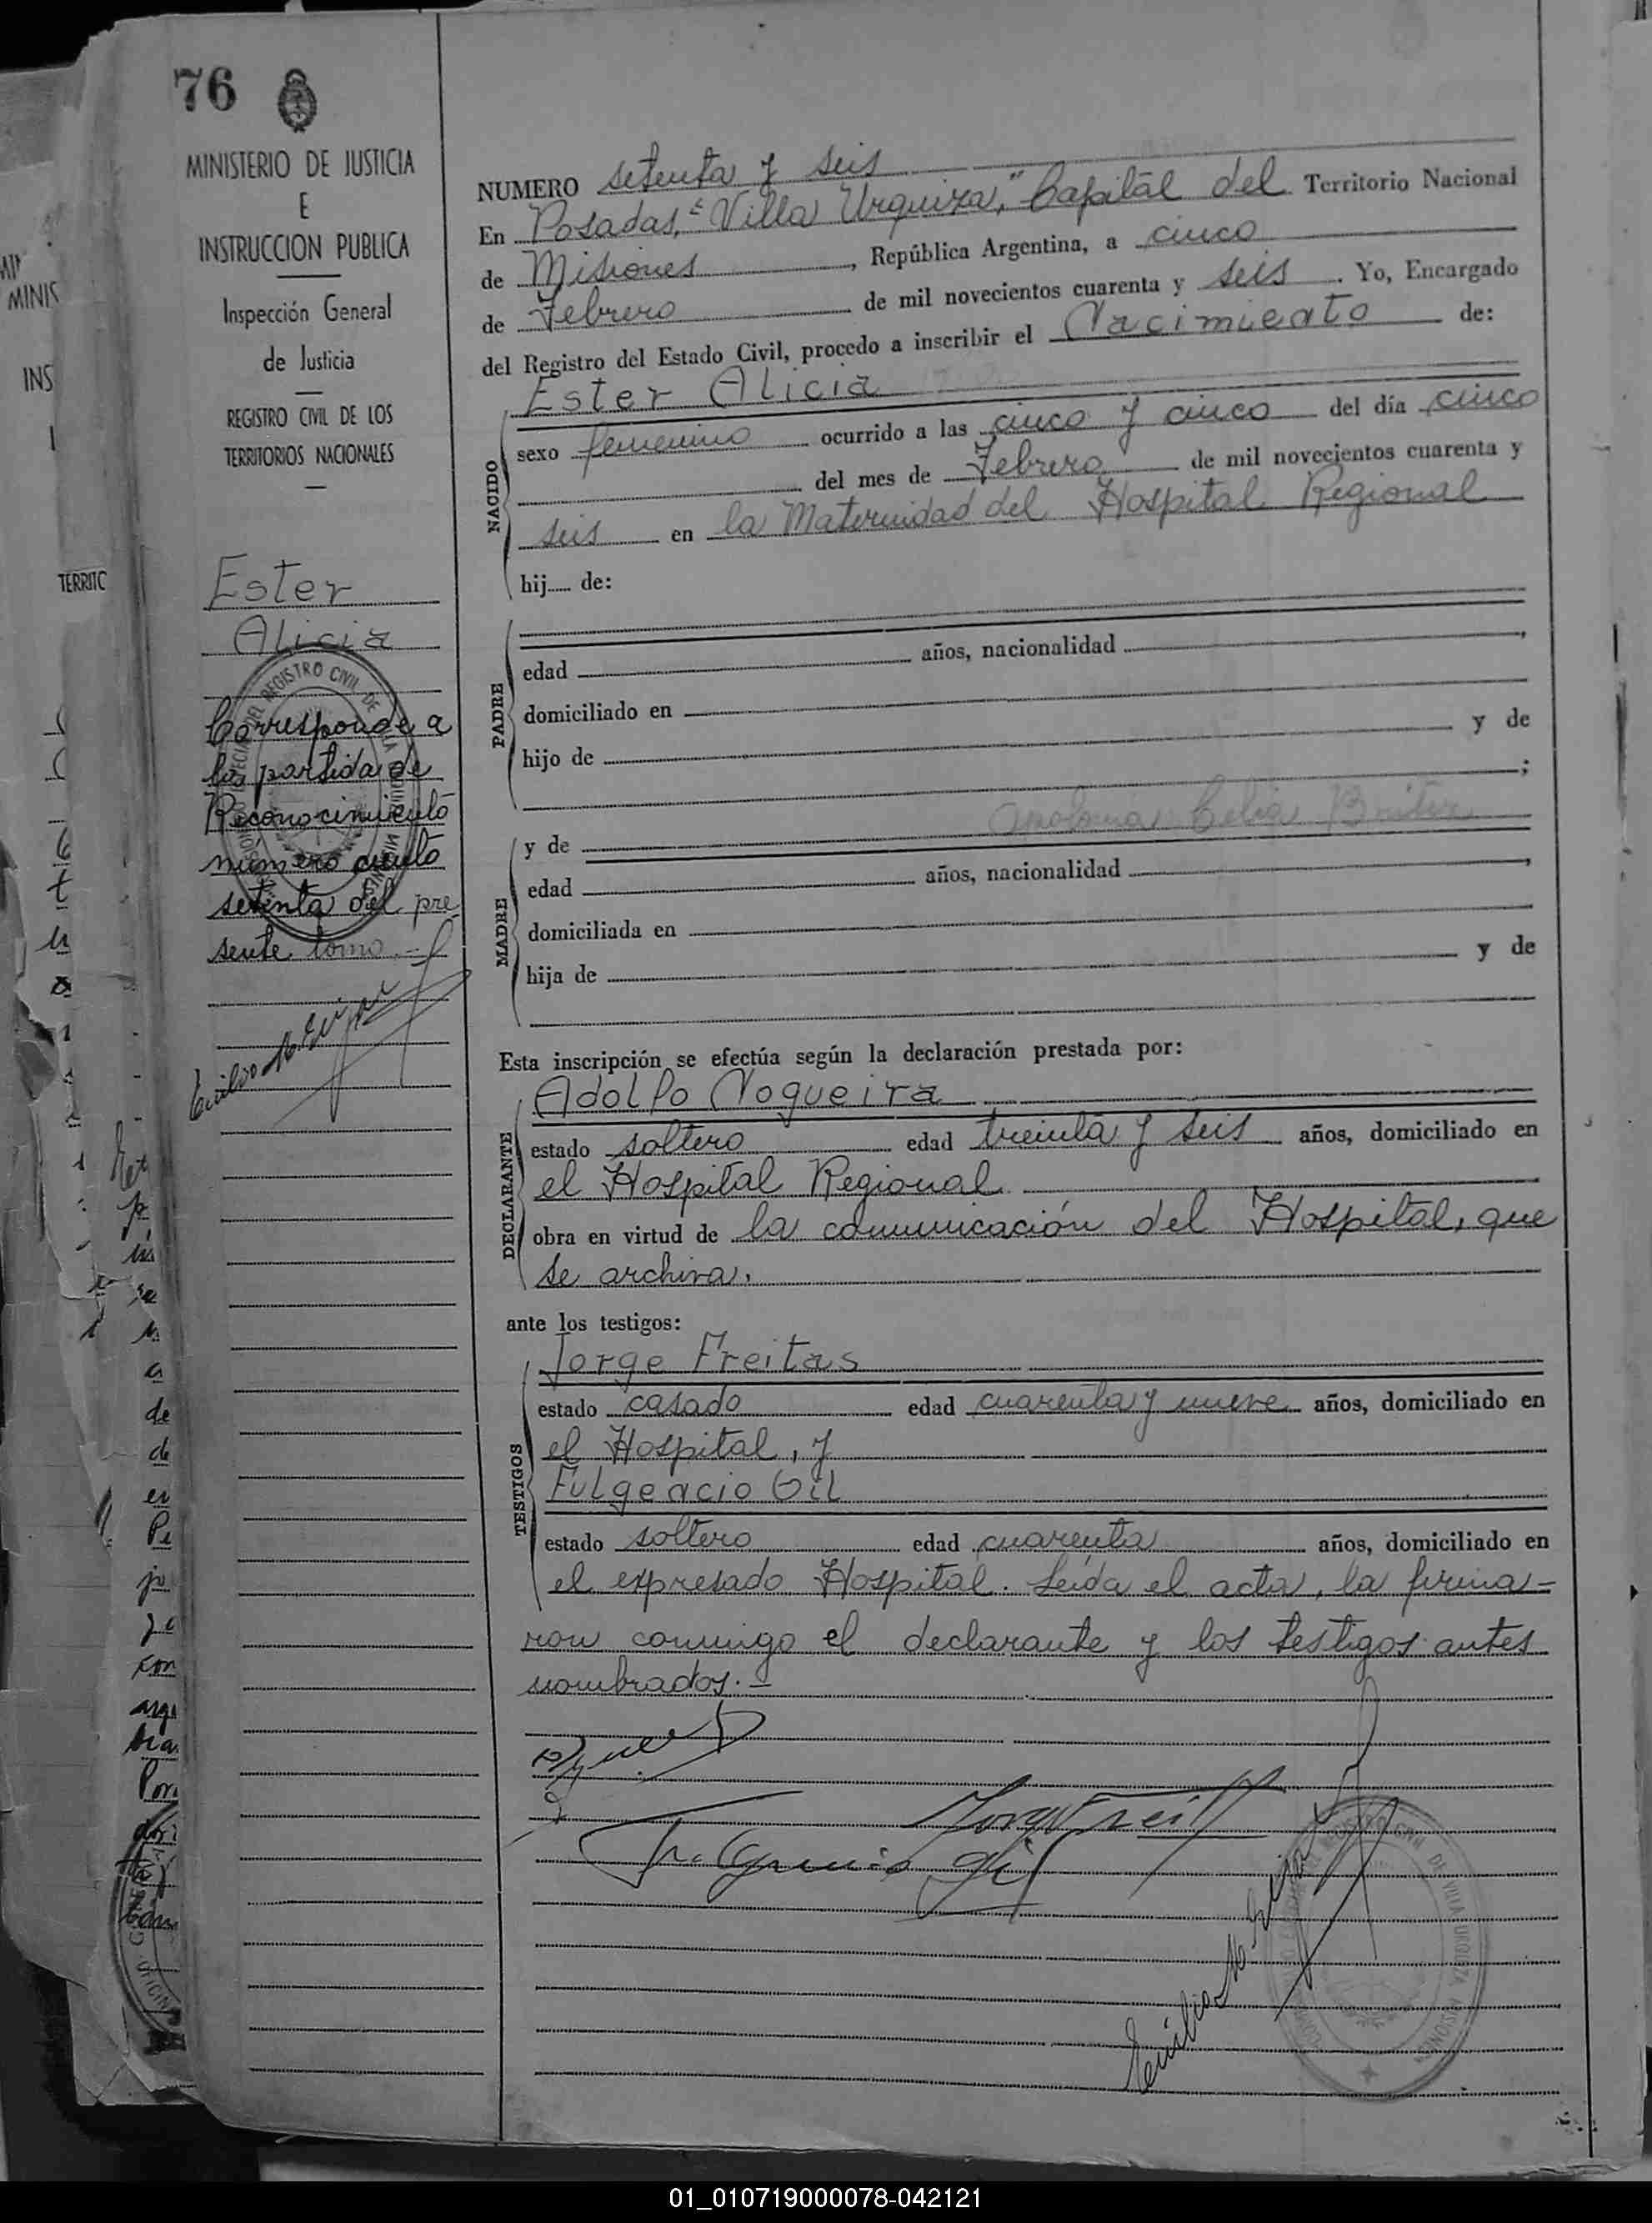 76
MINISTERIO DE JUSTICIA
E
INSTRUCCION PUBLICA
Inspección General
de Justicia
REGISTRO CIVIL DE LOS
TERRITORIOS NACIONALES
Ester
Alicia
Corresponde a
la partida de
Reconocimiento
número ciento
setenta del pre
sente tomo.=
NUMERO setenta y seis
En Posadas, "Villa Urquiza," Capital del Territorio Nacional
de Misiones, República Argentina, a cinco
de Febrero de mil novecientos cuarenta y seis. Yo, Encargado
del Registro del Estado Civil, procedo a inscribir el Nacimiento de:
Ester Alicia
NACIDO
sexo femenino ocurrido a las cinco y cinco del día cinco
del mes de Febrero de mil novecientos cuarenta y
seis en la Maternidad del Hospital Regional
hij..... de:
PADRE
edad años, nacionalidad ,
domiciliado en
hijo de y de
;
Celia
MADRE
y de
edad años, nacionalidad ,
domiciliada en
hija de y de
Esta inscripción se efectúa según la declaración prestada por:
DECLARANTE
Adolfo Nogueira
estado soltero edad treinta y seis años, domiciliado en
el Hospital Regional
obra en virtud de la comunicación del Hospital, que
se archiva.
ante los testigos:
TESTIGOS
Jorge Freitas
estado casado edad cuarenta y nueve años, domiciliado en
el Hospital, y
Fulgencio Gil
estado soltero edad cuarenta años, domiciliado en
el expresado Hospital. Leida el acta, la firma-
ron conmigo el declarante y los testigos antes
nombrados.-
01_010719000078-042121